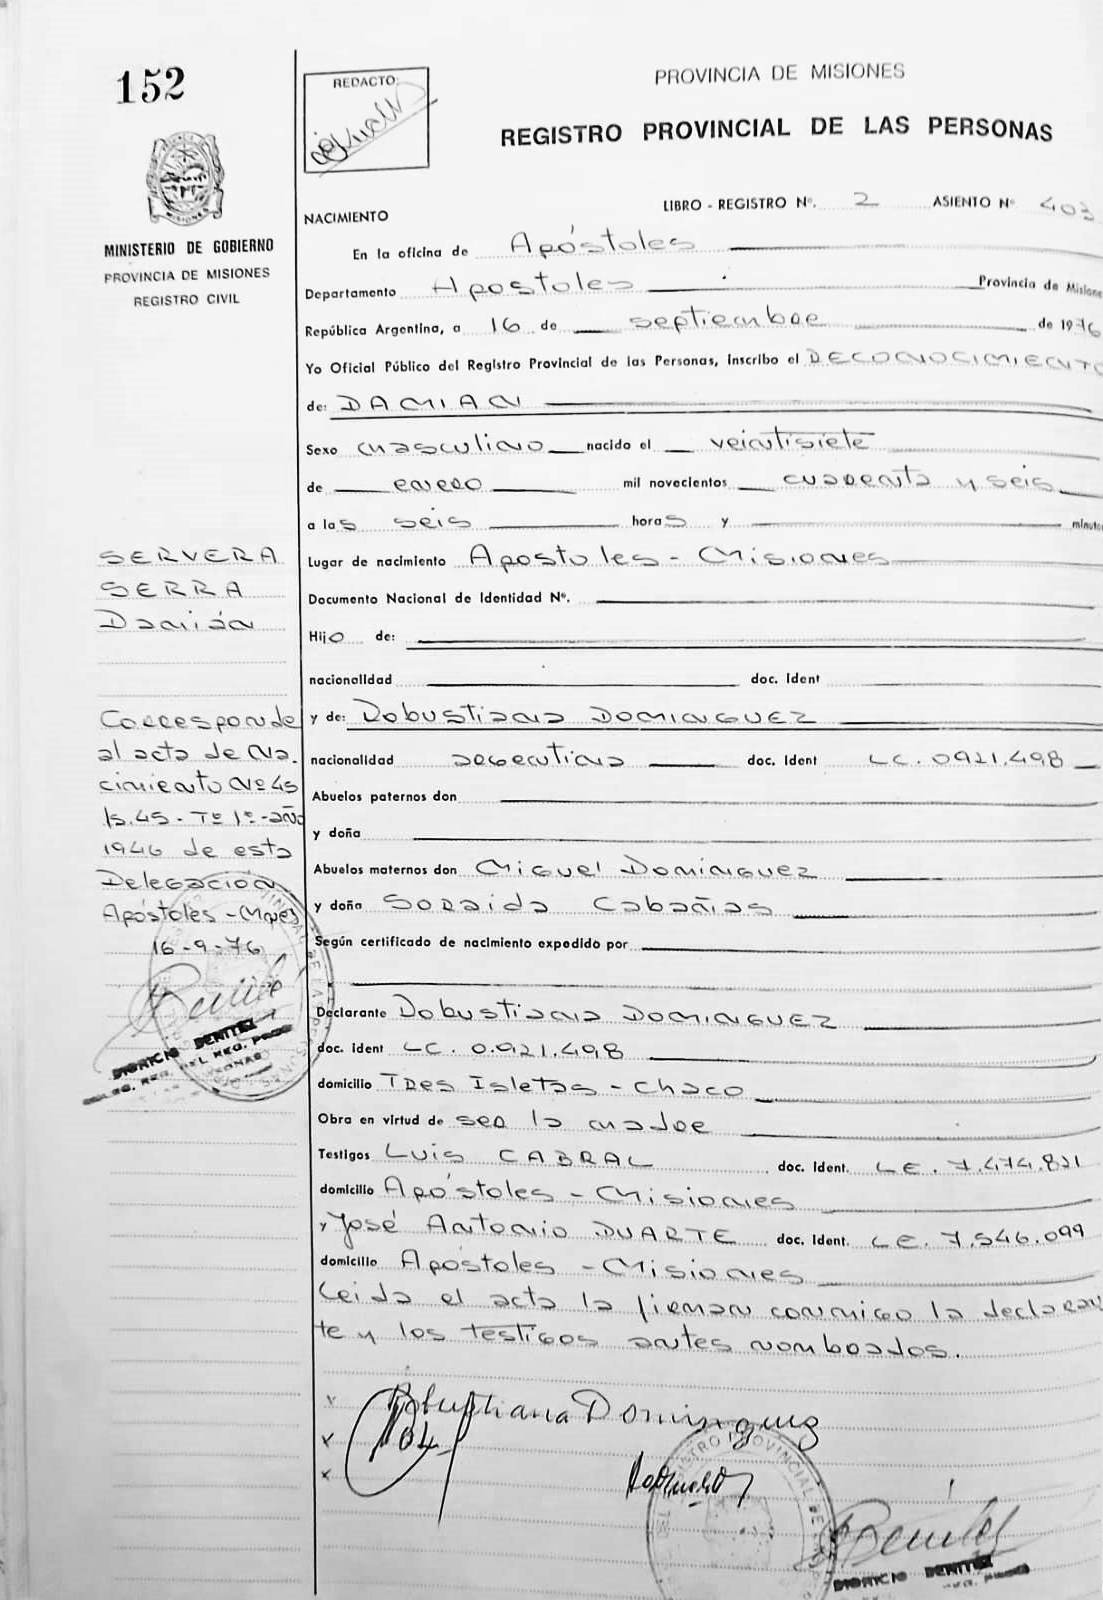 152
REDACTO:
PROVINCIA DE MISIONES
REGISTRO PROVINCIAL DE LAS PERSONAS
MINISTERIO DE GOBIERNO
PROVINCIA DE MISIONES
REGISTRO CIVIL
NACIMIENTO
LIBRO - REGISTRO Nº. 2 ASIENTO Nº 403
En la oficina de Apóstoles
Departamento Apostoles Provincia de Misiones
República Argentina, a 16 de septiembre de 1976
Yo Oficial Público del Registro Provincial de las Personas, inscribo el RECONOCIMIENTO
de: DAMIAN
Sexo masculino nacido el veintisiete
de enero mil novecientos cuarenta y seis
a las seis horas y minutos
Lugar de nacimiento Apostoles - Misiones
Documento Nacional de Identidad Nº.
Hijo de:
nacionalidad doc. Ident
y de: Robustiana DOMINGUEZ
nacionalidad argentina doc. Ident LC. 0921.498
Abuelos paternos don
y doña
Abuelos maternos don Miguel Domínguez
y doña Soraida Cabañas
Según certificado de nacimiento expedido por
Declarante Robustiana DOMINGUEZ
doc. ident LC. 0.921.498
domicilio Tres Isletas - Chaco
Obra en virtud de ser la madre
Testigos Luis CABRAL doc. Ident. LE. 7.474.821
domicilio Apóstoles - Misiones
y José Antonio DUARTE doc. Ident. LE. 7.546.099
domicilio Apóstoles - Misiones
Leida el acta la firman conmigo la declaran
te y los testigos antes nombrados.
SERVERA
SERRA
Damián
Corresponde
al acta de Na.
cimiento Nº 45
Fs. 45 - Tº 1º - año
1946 de esta
Delegación
Apóstoles - Mnes
16-9-76
DIONICIO BENITEZ
Robustiana Dominguez
DIONICIO BENITEZ